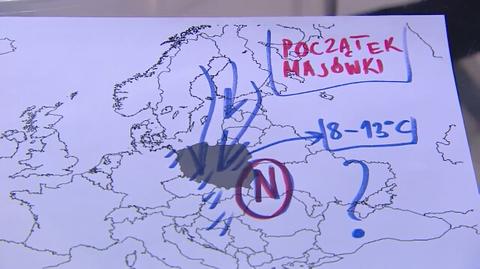 POCZĄTEK
MAJÓWKI
8-13°C
N
?